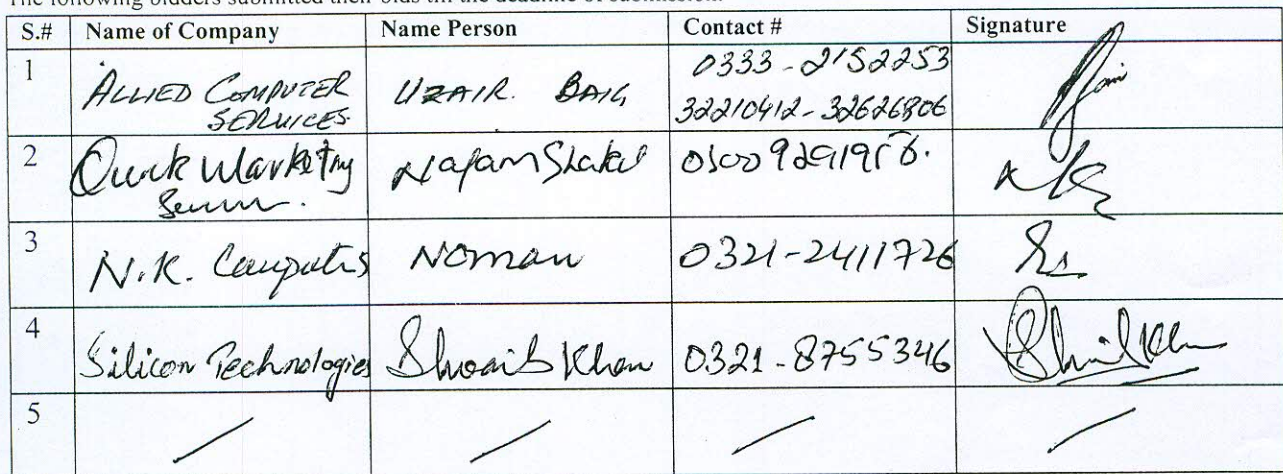 The following bidders submitted their bids till the deadline of submission.
S.# Name of Company Name Person Contact # Signature
1 ALLIED COMPUTER SERVICES. UZAIR. BAIG 0333-2152253
32210412-32626806
2 Quick Marketing Najam Shakil
3 N.K. Computers Noman 0321-2411726
4 Silicon Technologies Shoaib Khan 0321-8755346
5 / / / /